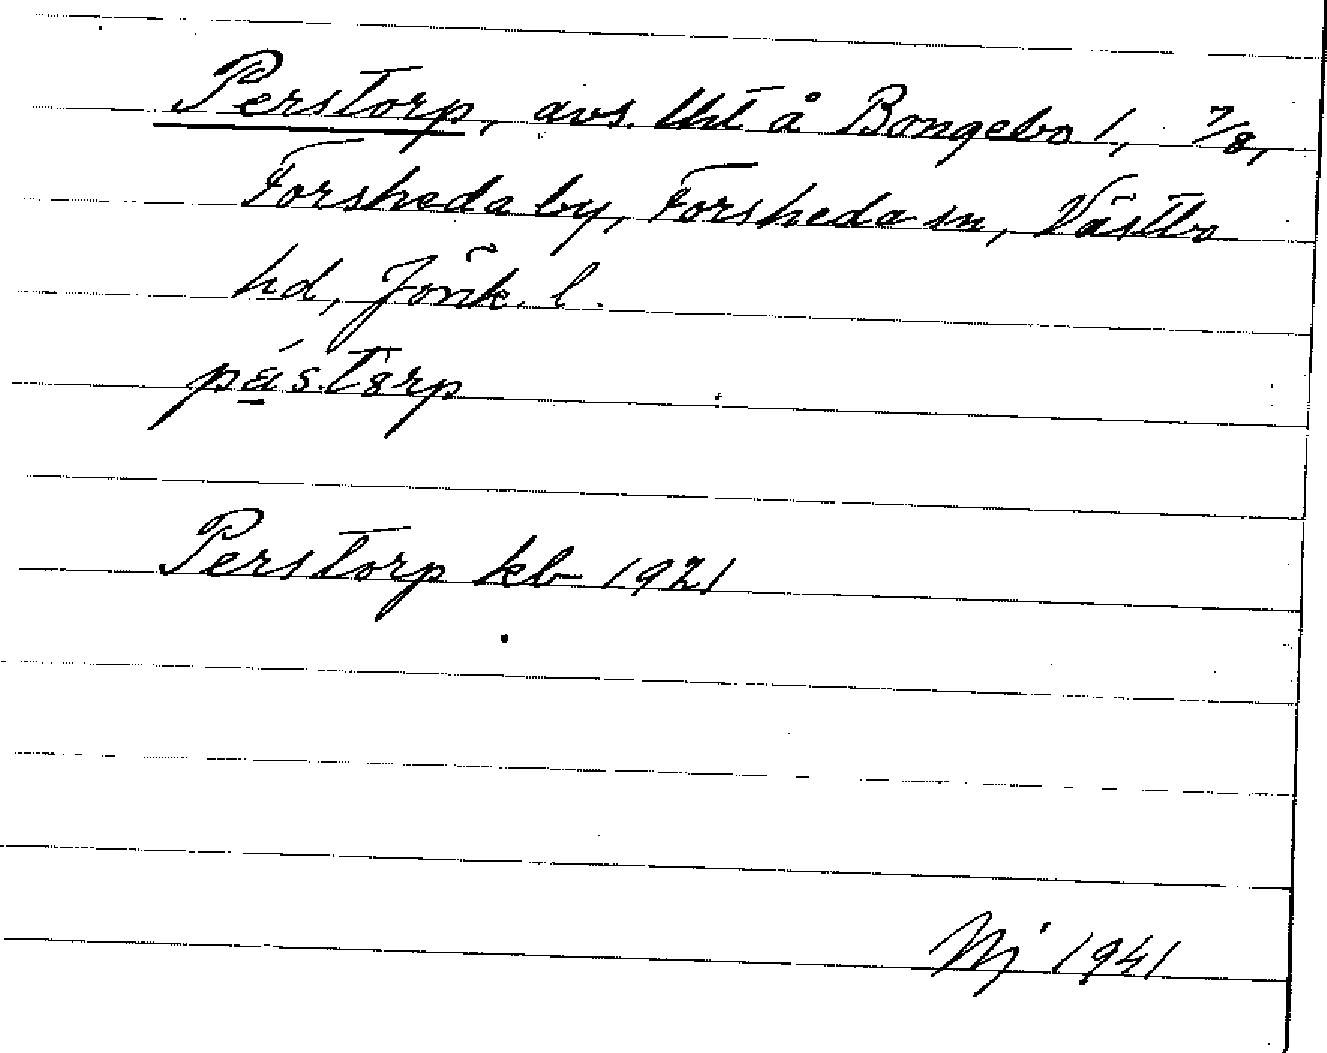 Perstorp, avs. lht å Bongebo 1, 7/8,
Forsheda by, Forsheda sn, Västbo
hd, Jönk. l.
Perstorp kb 1921
Nj 1941